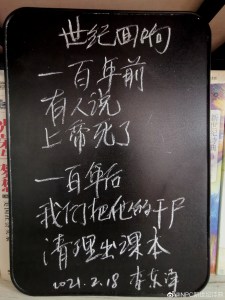 世纪回响
一百年前
有人说
上帝死了
一百年后
我们把他的干尸
清理出课本
2021.2.18 李东泽